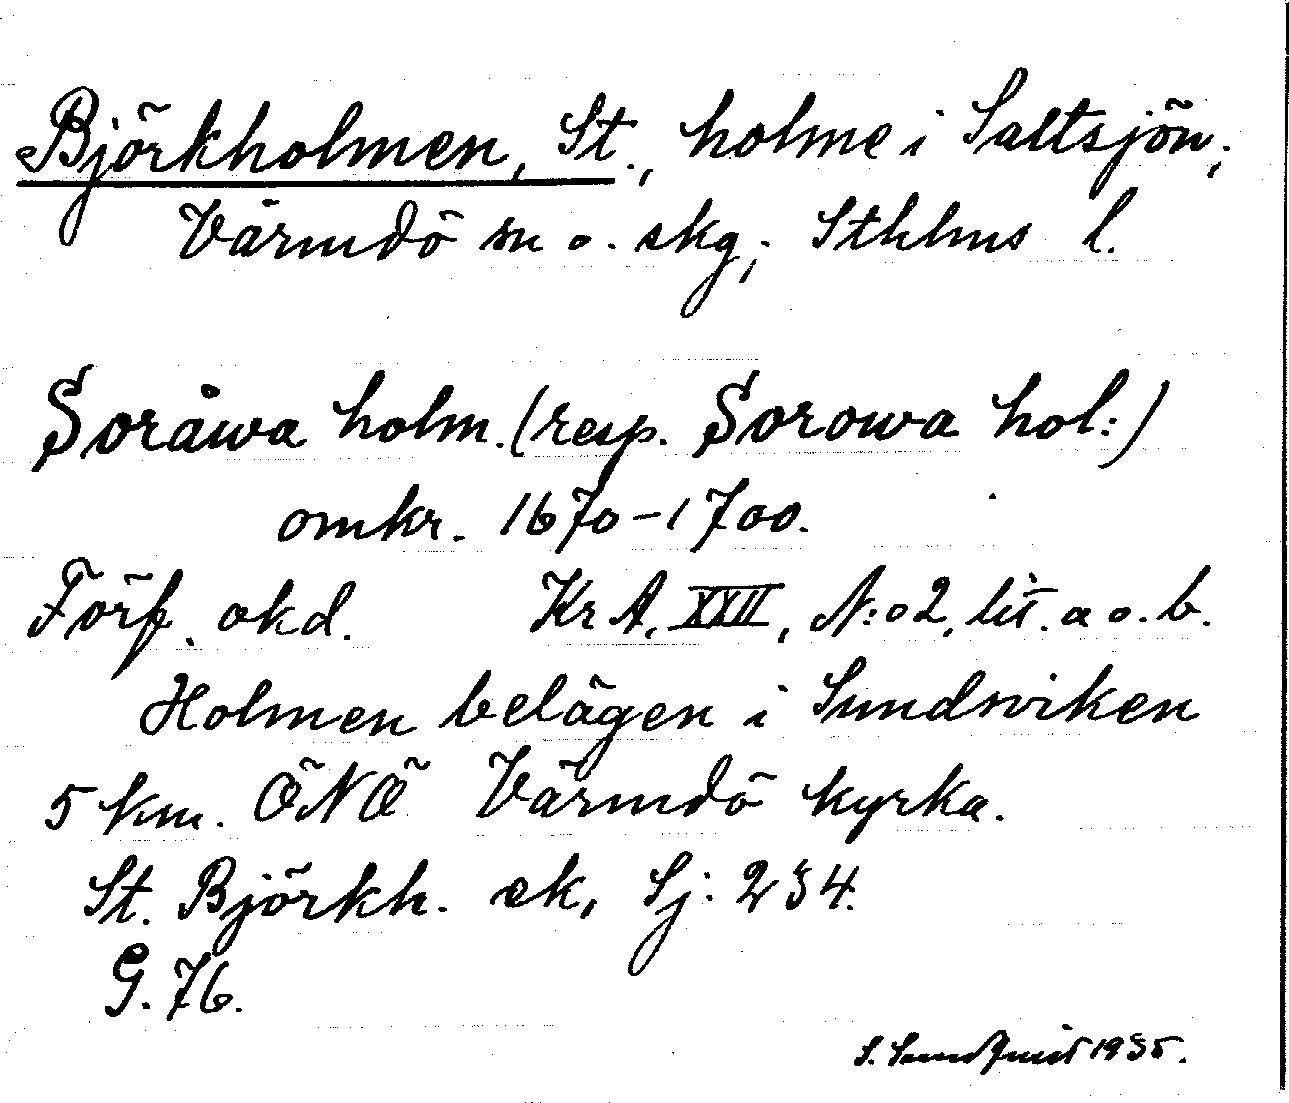 Björkholmen, St., holme i Saltsjön;
Värmdö sn o. skg; Sthlms l.
Soråwa holm. (resp. Sorowa hol:)
omkr. 1670-1700.
Förf. okd. KrA, XXII, N:o 2, lit. a o. b.
Holmen belägen i Sundsviken
5 km. ÖNÖ Värmdö kyrka.
St. Björkh. ek, Sj: 234.
G. 76.
S. Sundquist 1935.